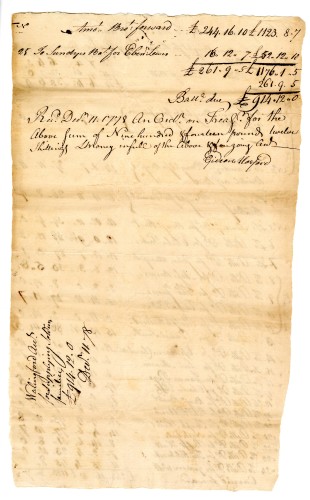 Amot Brot forward £ 244.16.10 £1123.8.7
25 To Sundrys Bot for Eben 16.12.7 £52.12.10
£261.9.5 £1176.1.5
261.9.5
Ballce due £914.12.0
Recd Decr 11. 1778 An Ordr on Treasr for the
Above Sum of Nine hundred & fourteen pounds twelve
Shillings Money in full of the Above
Gideon Hosford
Wallingford Acct
£914.12.0
Decr 11. 78